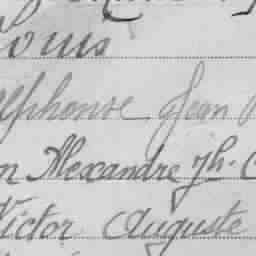 ouis
lphonse Jean
n Alexandre Jh.
Victor Auguste